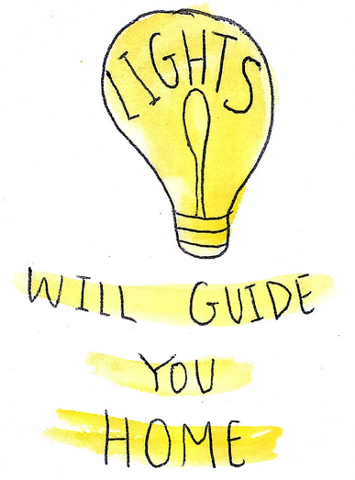 LIGHTS
WILL GUIDE
YOU
HOME